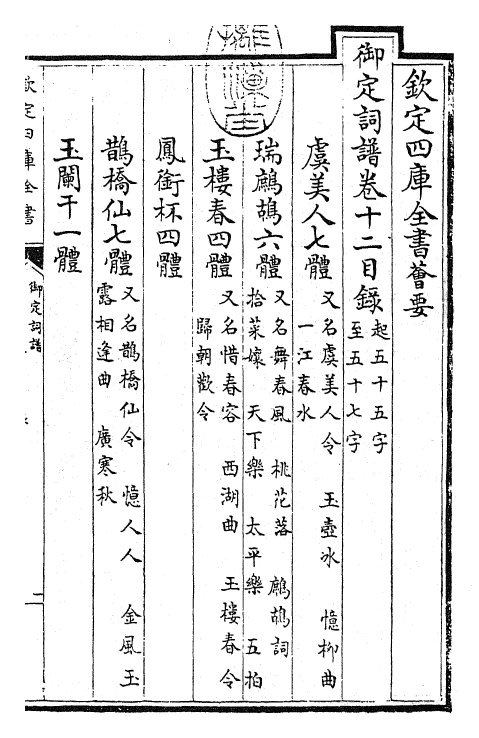 欽定四庫全書薈要
御定詞譜卷十二目錄
起五十五字
至五十七字
虞美人七體
又名虞美人令　玉壺冰　憶柳曲
一江春水
瑞鷓鴣六體
又名舞春風　桃花落　鷓鴣詞
拾菜孃　天下樂　太平樂　五拍
玉樓春四體
又名惜春容　西湖曲　玉樓春令
歸朝歡令
鳳銜杯四體
鵲橋仙七體
又名鵲橋仙令　憶人人　金風玉
露相逢曲　廣寒秋
玉闌干一體
欽定四庫全書
御定詞譜